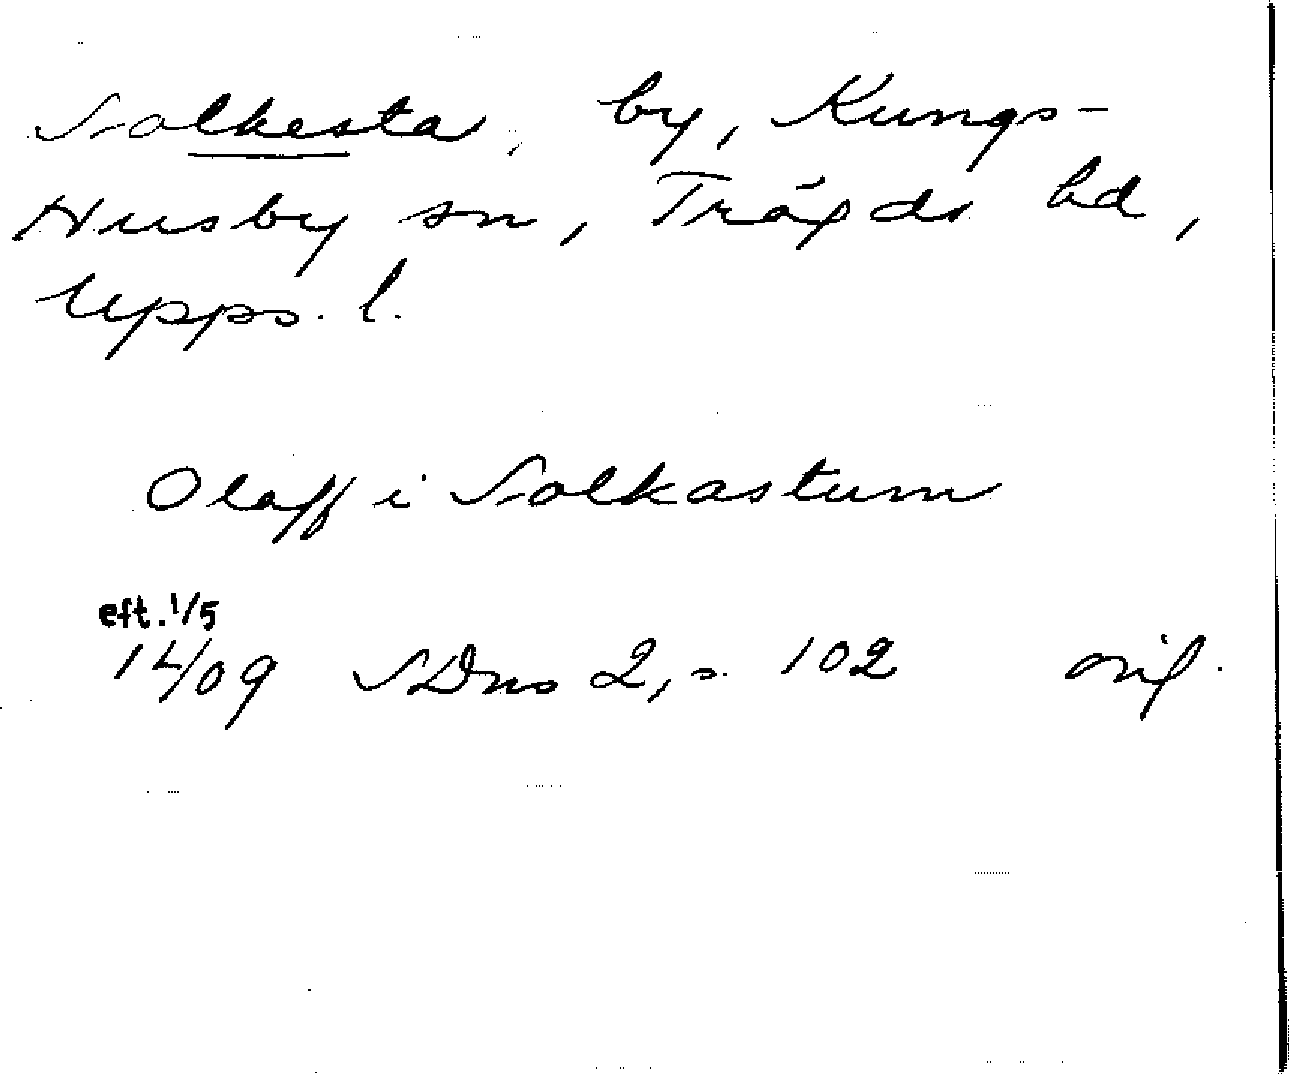 Solkesta, by, Kungs-
Husby sn, Trögds hd,
Upps. l.
Olaff i Solkastum
eft. 1/5
1409 SDns 2, s. 102 orig.